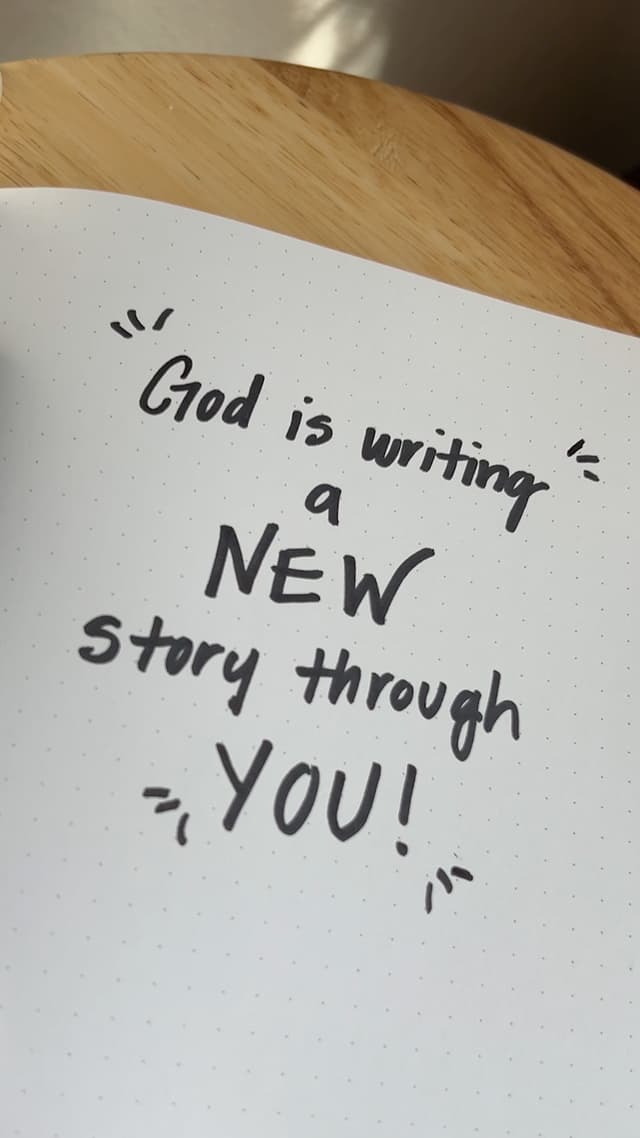 God is writing
a
NEW
story through
YOU!